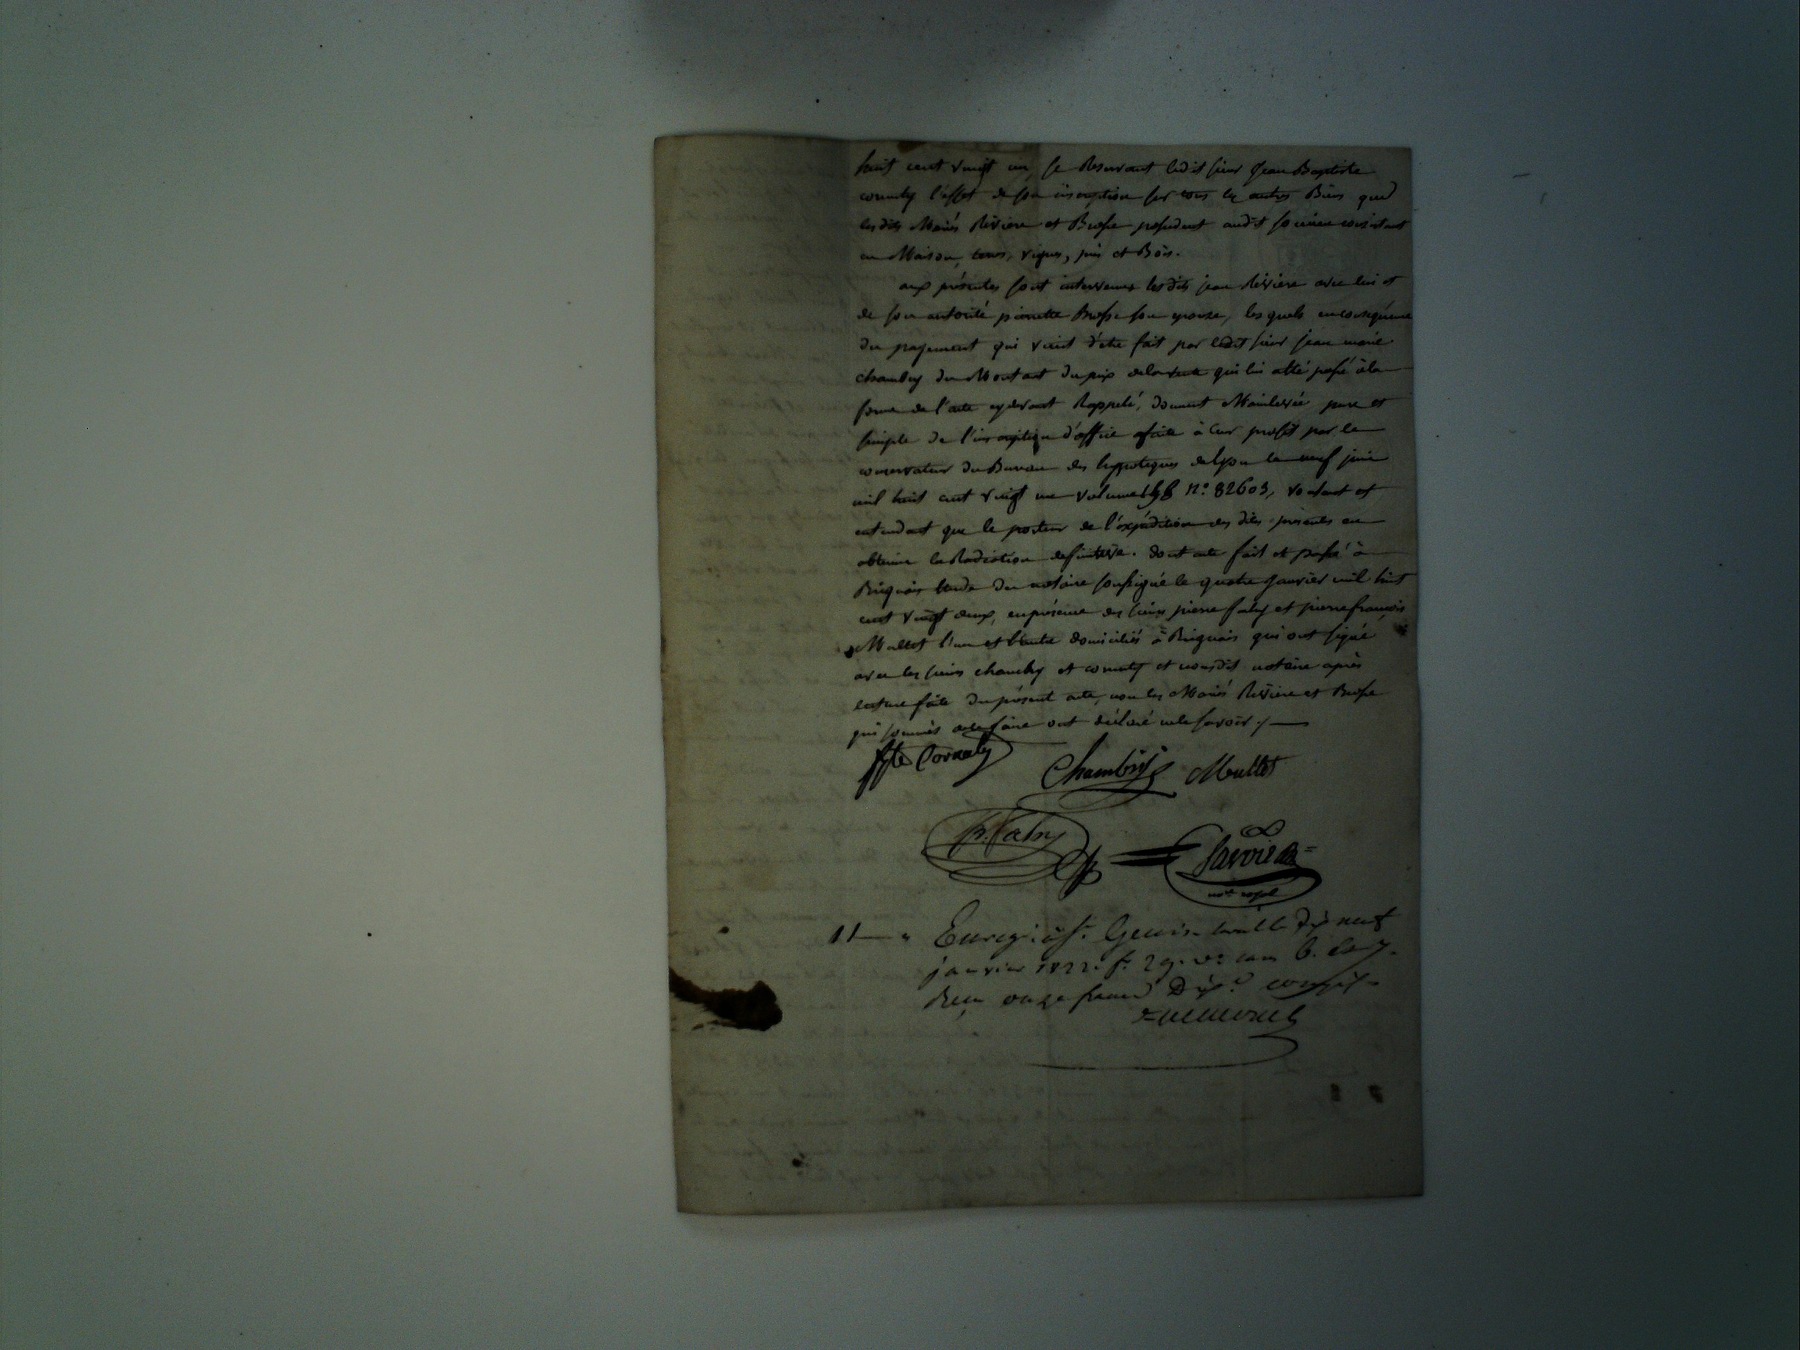 huit cent vingt un, se Reservant ledit sieur Jean Baptiste
cornuty l'effet de son inscription sur tous les autres Biens que
lesdits Mariés Riviere et Brosse possedent audit consistant
en Maison, terres, vignes, prés et Bois.
aux présentes sont intervenus lesdits jean Riviere avec lui et
de son autorité pierrette Brosse son epouse, lesquels en conséquence
du payement qui vient d'etre fait par ledit sieur jean marie
chambry du Montant du prix de la vente qui lui a été passé à la
forme de l'acte cydevant Rappelé, donnent Mainlevée pure et
simple de l'inscription d'office faite à leur profit par le
conservateur du Bureau des hypoteques de Lyon le neuf juin
mil huit cent vingt un volume n.º 82603, voulant et
entendant que le porteur de l'éxpédition des dites présentes en
obtienne la Radiation definitive. dont acte fait et passé à
Brignais étude du notaire soussigné le quatre Janvier mil huit
cent vingt deux, en présence des sieurs pierre et pierre françois
Mallet l'un et l'autre domiciliés à Brignais qui ont signé
avec les sieurs chambry et cornuty et nousdit notaire après
lecture faite du présent acte, non les Mariés Riviere et Brosse
qui sommés de le faire ont déclaré ne le savoir ./.
Cornuty
Chambry Mallet
notre royal
Enregistré. Genis Laval le Dix neuf
janvier 1822. f. 29. vº case 6.
Reçu onze francs Dixe compris